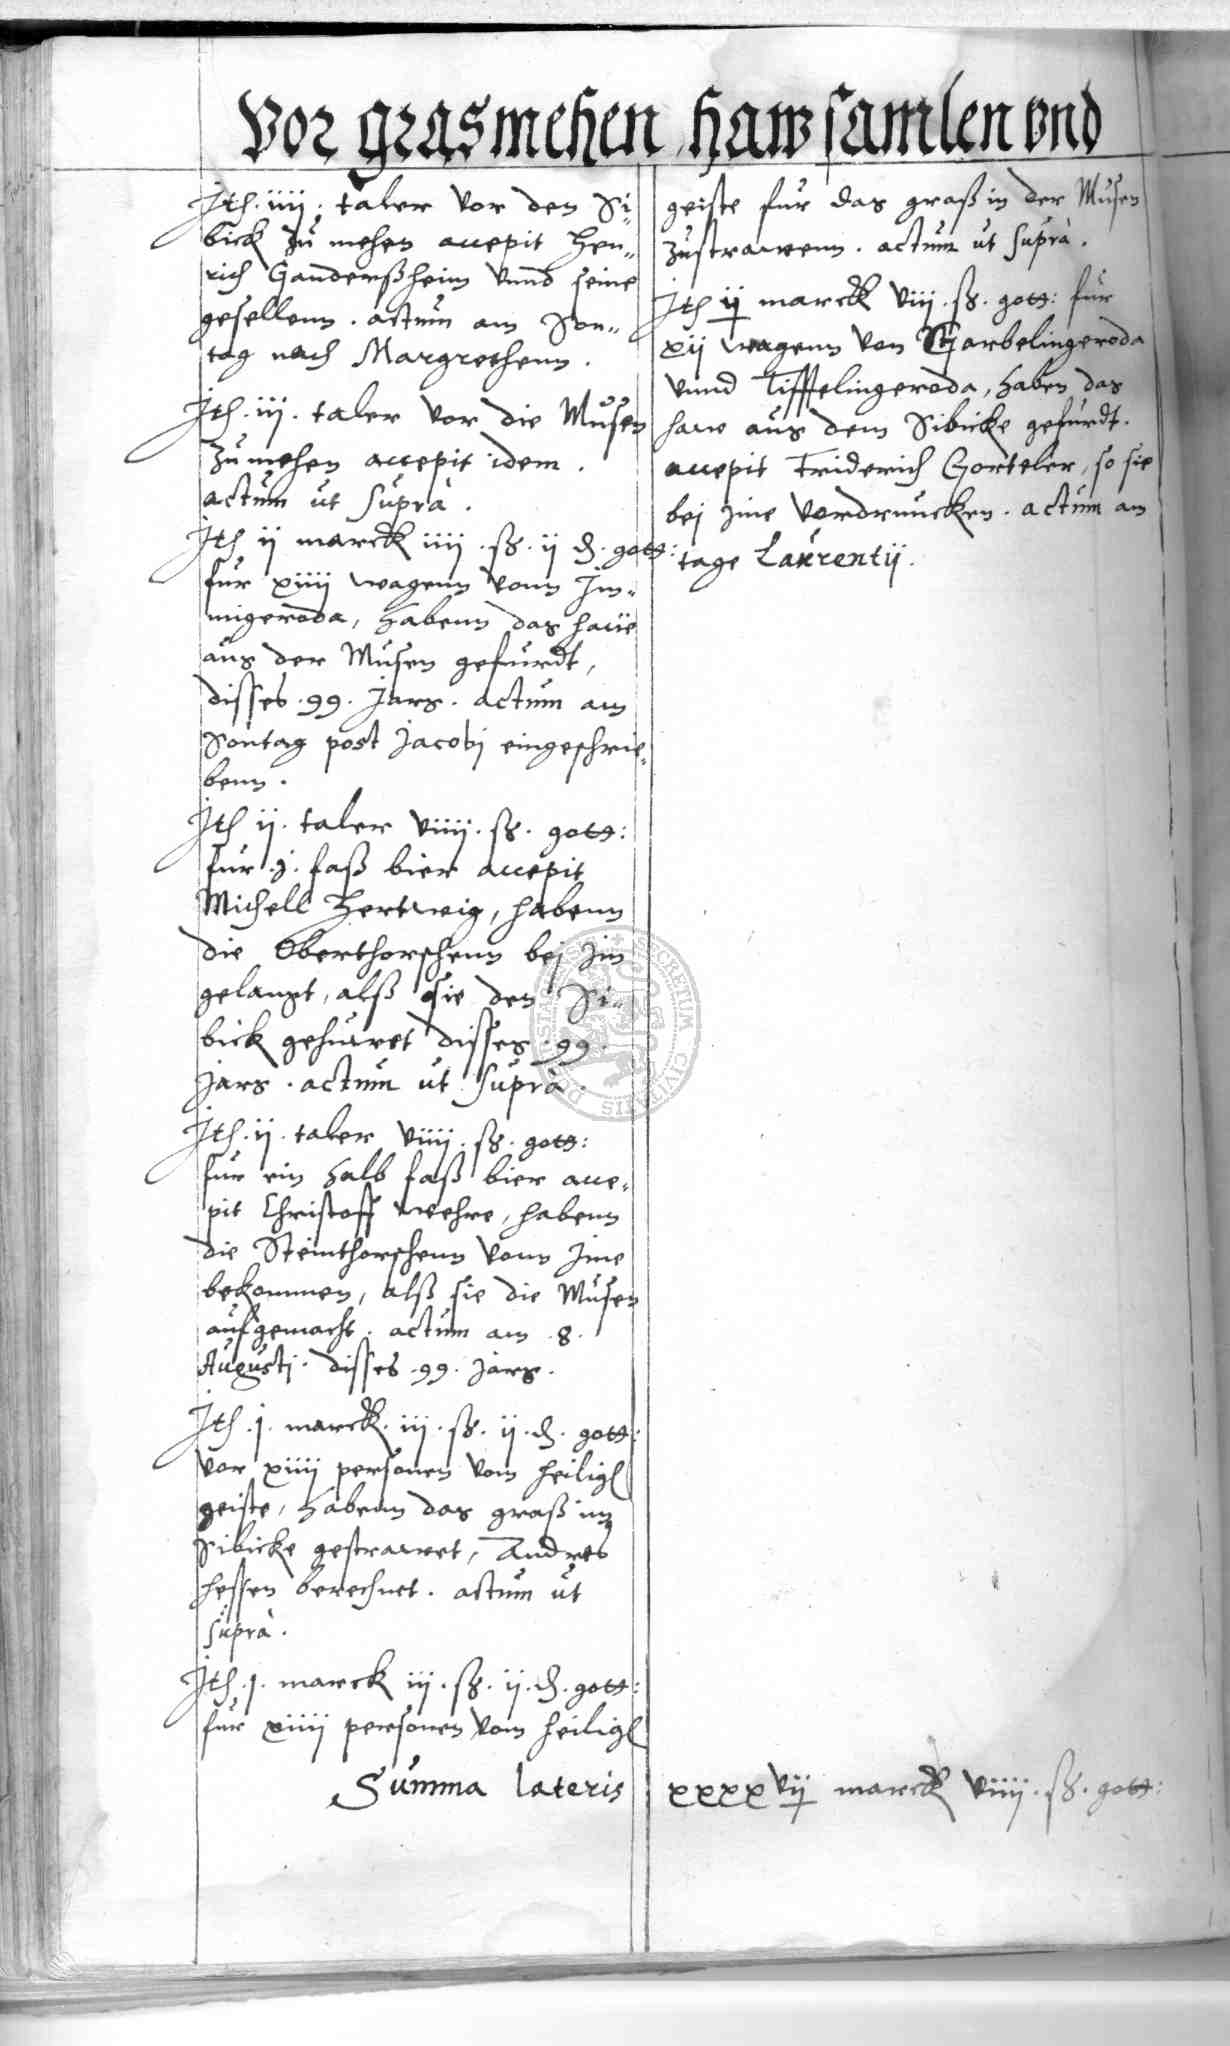 Vor grasmehen haw samlen vnd
Jth. iiij. taler vor den Si-
bick zu mehen accepit Hen-
rich Ganderßheim vnnd seine
gesellenn. actum am Son-
tag nach Margrethenn.
Jth. iij. taler vor die Musen
zu mehen accepit idem.
actum ut supra.
Jth ij marck iiij. ß. ij d. gott:
fur xiiij wagenn vonn Jm-
migeroda, habenn das hawe
aus der Musen gefurdt,
disses .99. Jars. actum am
Sontag post Jacobj eingeschrie-
benn.
Jth ij. taler viiij. ß. gott:
fur .j. faß bier accepit
Michell Hertwig, habenn
die Oberthorschenn bej Jm
gelangt, alß sie den Si-
bick gehuwet disses .99.
Jars. actum ut supra.
Jth. ij. taler viiij. ß. gott:
fur ein halb faß bier acce-
pit Christoff Wehre, habenn
die Steinthorschenn vonn Jme
bekommen, alß sie die Musen
aufgemacht. actum am .8.
Augustj. disses .99. Jars.
Jth .j. marck. iij. ß. ij. d. gott:
vor xiiij personen vom heilig
geiste, habenn das graß im
Sibicke gestrawet, Andres
hessen berechnet. actum ut
supra.
Jth .j. marck iij. ß. ij. d. gott:
fur xiiij personen vom heilig
geiste fur das graß in der Musen
zustrawenn. actum ut supra.
Jth ij marck viij. ß. gott: fur
xij wagenn von Garbelingeroda
vnnd Tifftelingeroda, haben das
haw aus dem Sibicke gefurdt.
accepit Friderich Gorteler, so sie
bej Jme vordruncken. actum am
tage Laurentij.
Summa lateris xxxxvij marck viiij. ß. gott:
SECRETUM CIVITATIS